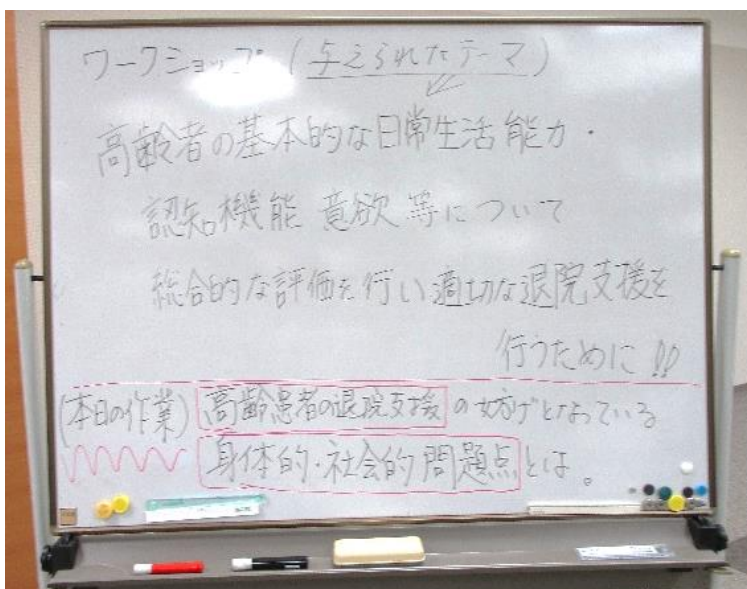 ワークショップ (与えられたテーマ)
高齢者の基本的な日常生活能力・
認知機能 意欲 等について
総合的な評価を行い適切な退院支援を
行うために!!
(本日の作業) 高齢患者の退院支援 の妨げとなっている
身体的・社会的 問題点とは。